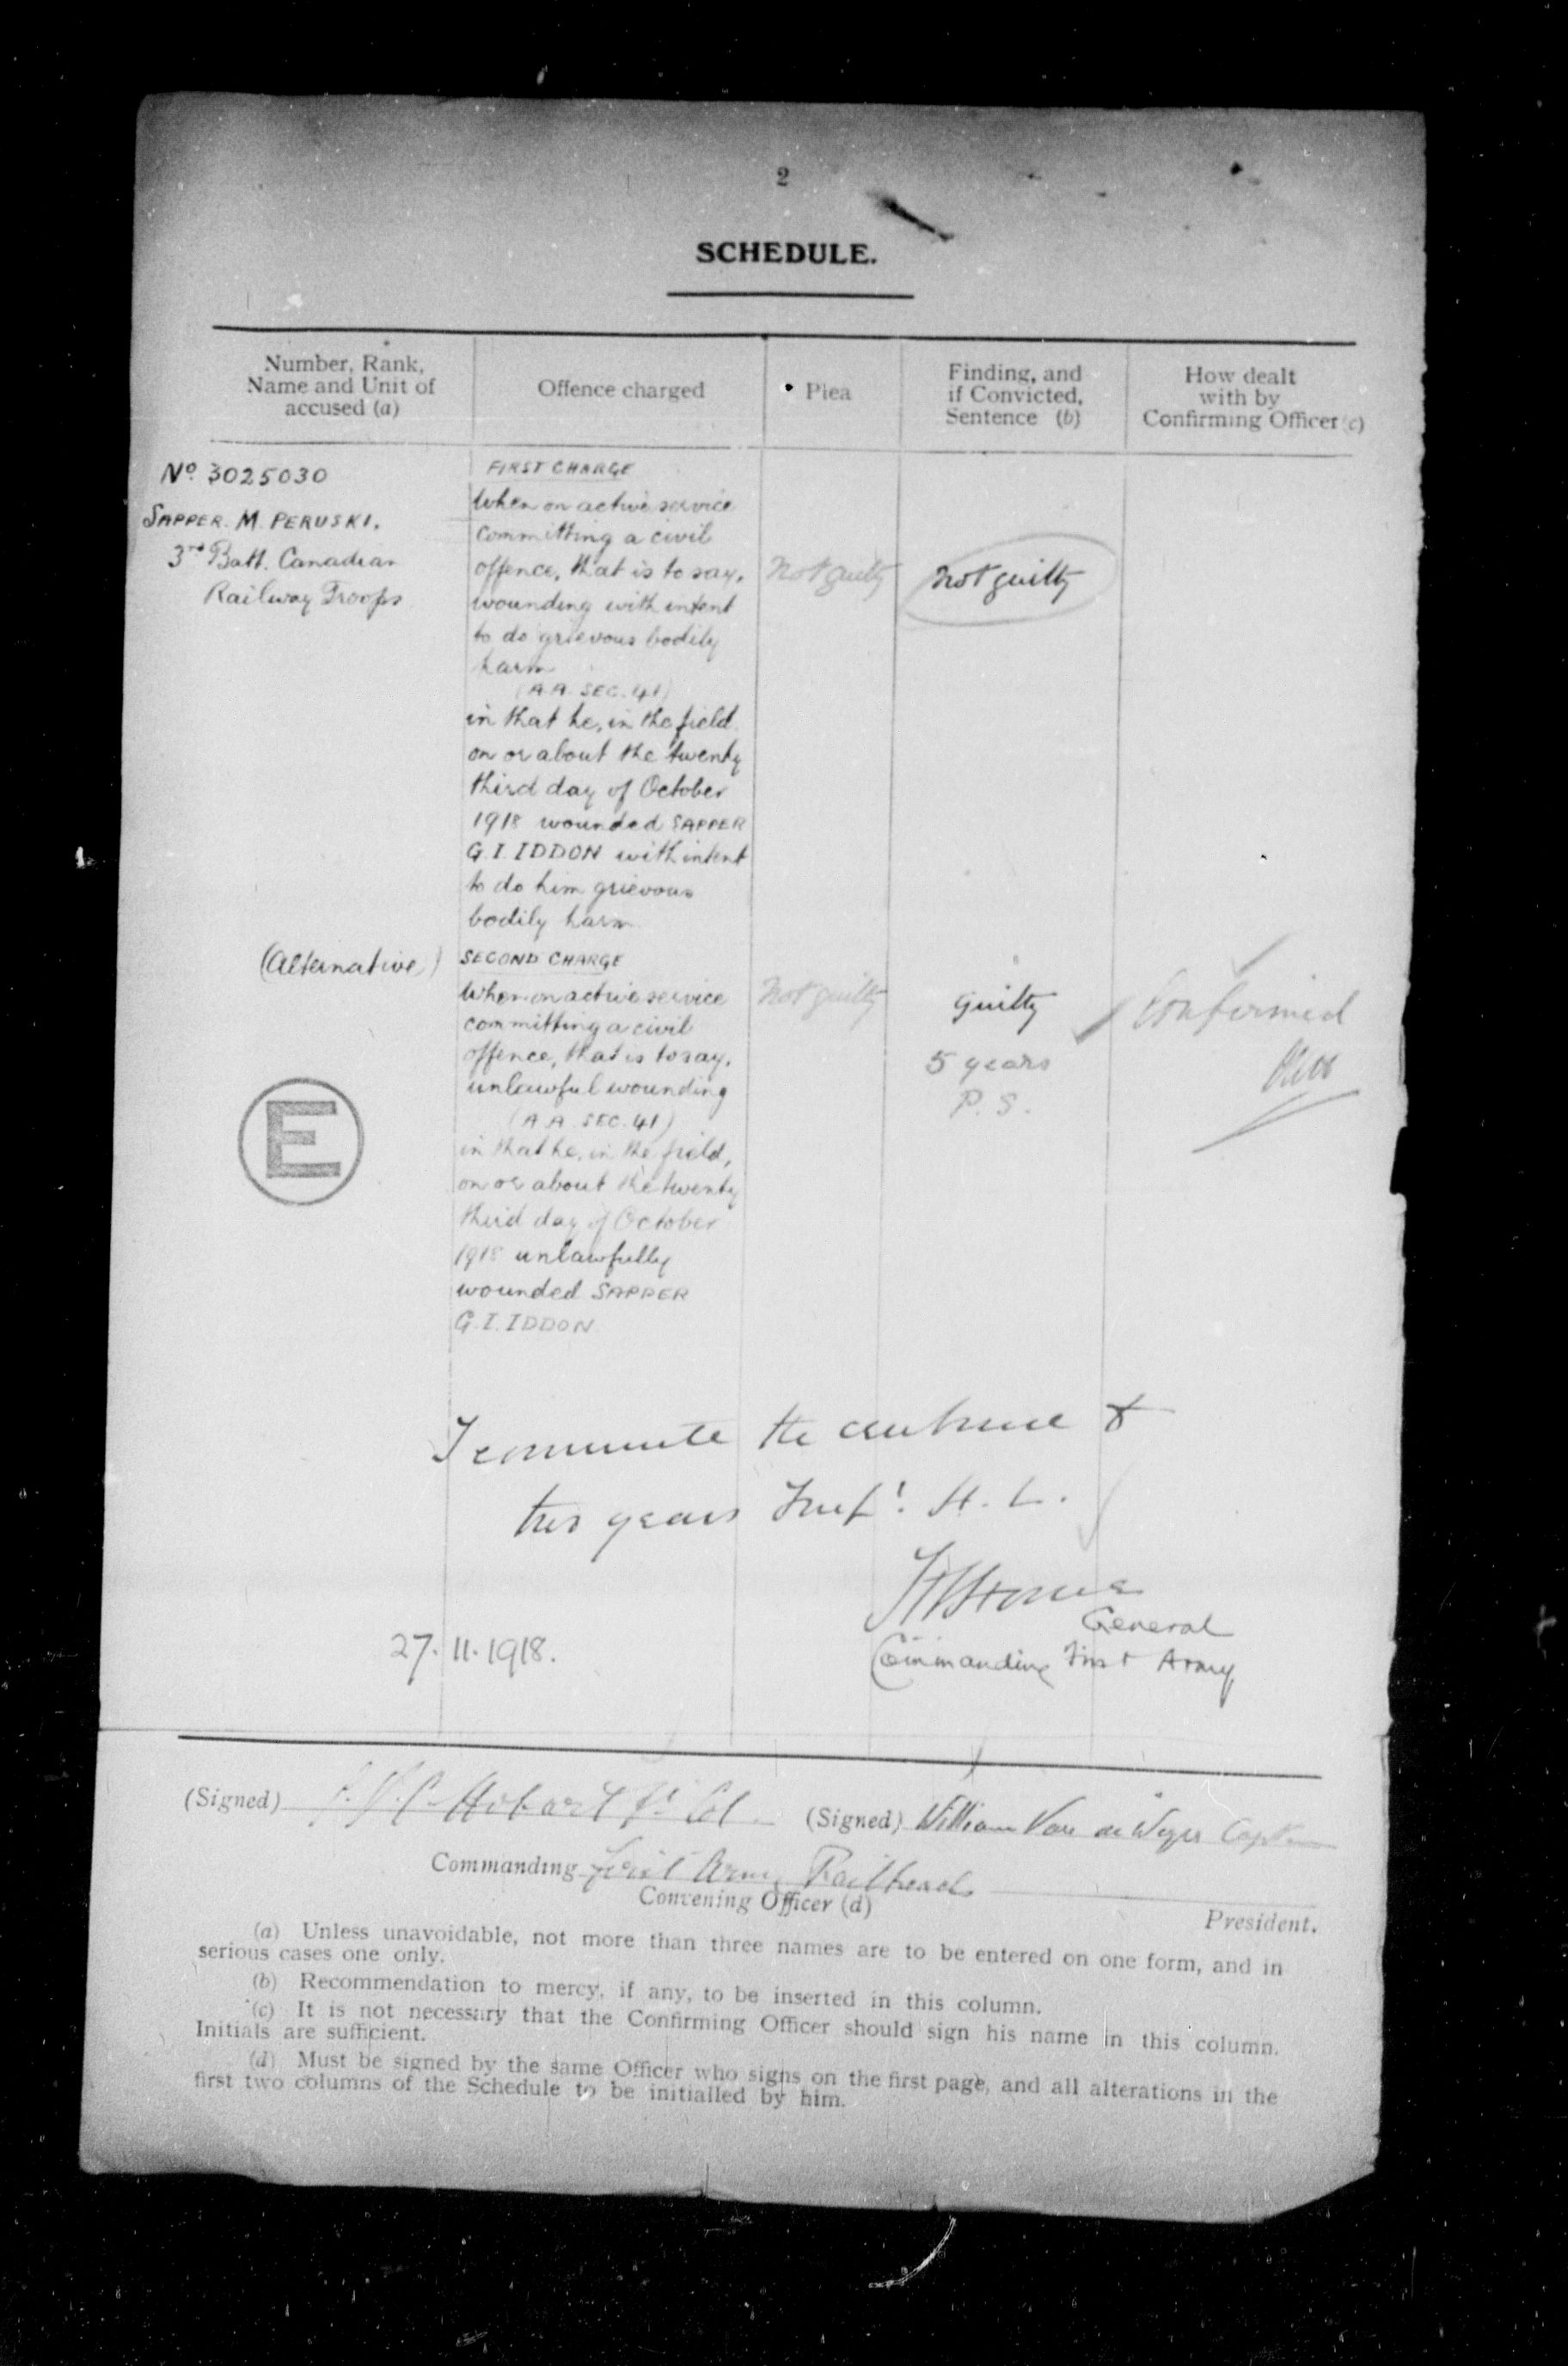 2
SCHEDULE.
Number, Rank,
Name and Unit of
accused (a)
Offence charged
Plea
Finding, and
if Convicted,
Sentence (b)
How dealt
with by
Confirming Officer (c)
No. 3025030
SAPPER. M. PERUSKI.
3rd Batt. Canadian
Railway Troops
FIRST CHARGE
When on active service
committing a civil
offence, that is to say,
wounding with intent
to do grievous bodily
harm
(A.A. SEC. 41)
in that he, in the field
on or about the twenty
third day of October
1918 wounded SAPPER
G.I. IDDON with intent
to do him grievous
bodily harm
Not guilty
Not guilty
(Alternative)
SECOND CHARGE
When on active service
committing a civil
offence, that is to say,
unlawful wounding
(A.A. SEC. 41)
in that he, in the field,
on or about the twenty
third day of October
1918 unlawfully
wounded SAPPER
G.I. IDDON
Not guilty
Guilty
5 years
P. S.
Confirmed
E
I commute the sentence to
two years Impt. H. L.
HHorne
General
Commanding First Army
27.11.1918.
(Signed) Hobart Lt Col
(Signed) William Van de Weyer Captain
Commanding First Army Railheads
Convening Officer (d)
President.
(a) Unless unavoidable, not more than three names are to be entered on one form, and in
serious cases one only.
(b) Recommendation to mercy, if any, to be inserted in this column.
(c) It is not necessary that the Confirming Officer should sign his name in this column.
Initials are sufficient.
(d) Must be signed by the same Officer who signs on the first page, and all alterations in the
first two columns of the Schedule to be initialled by him.